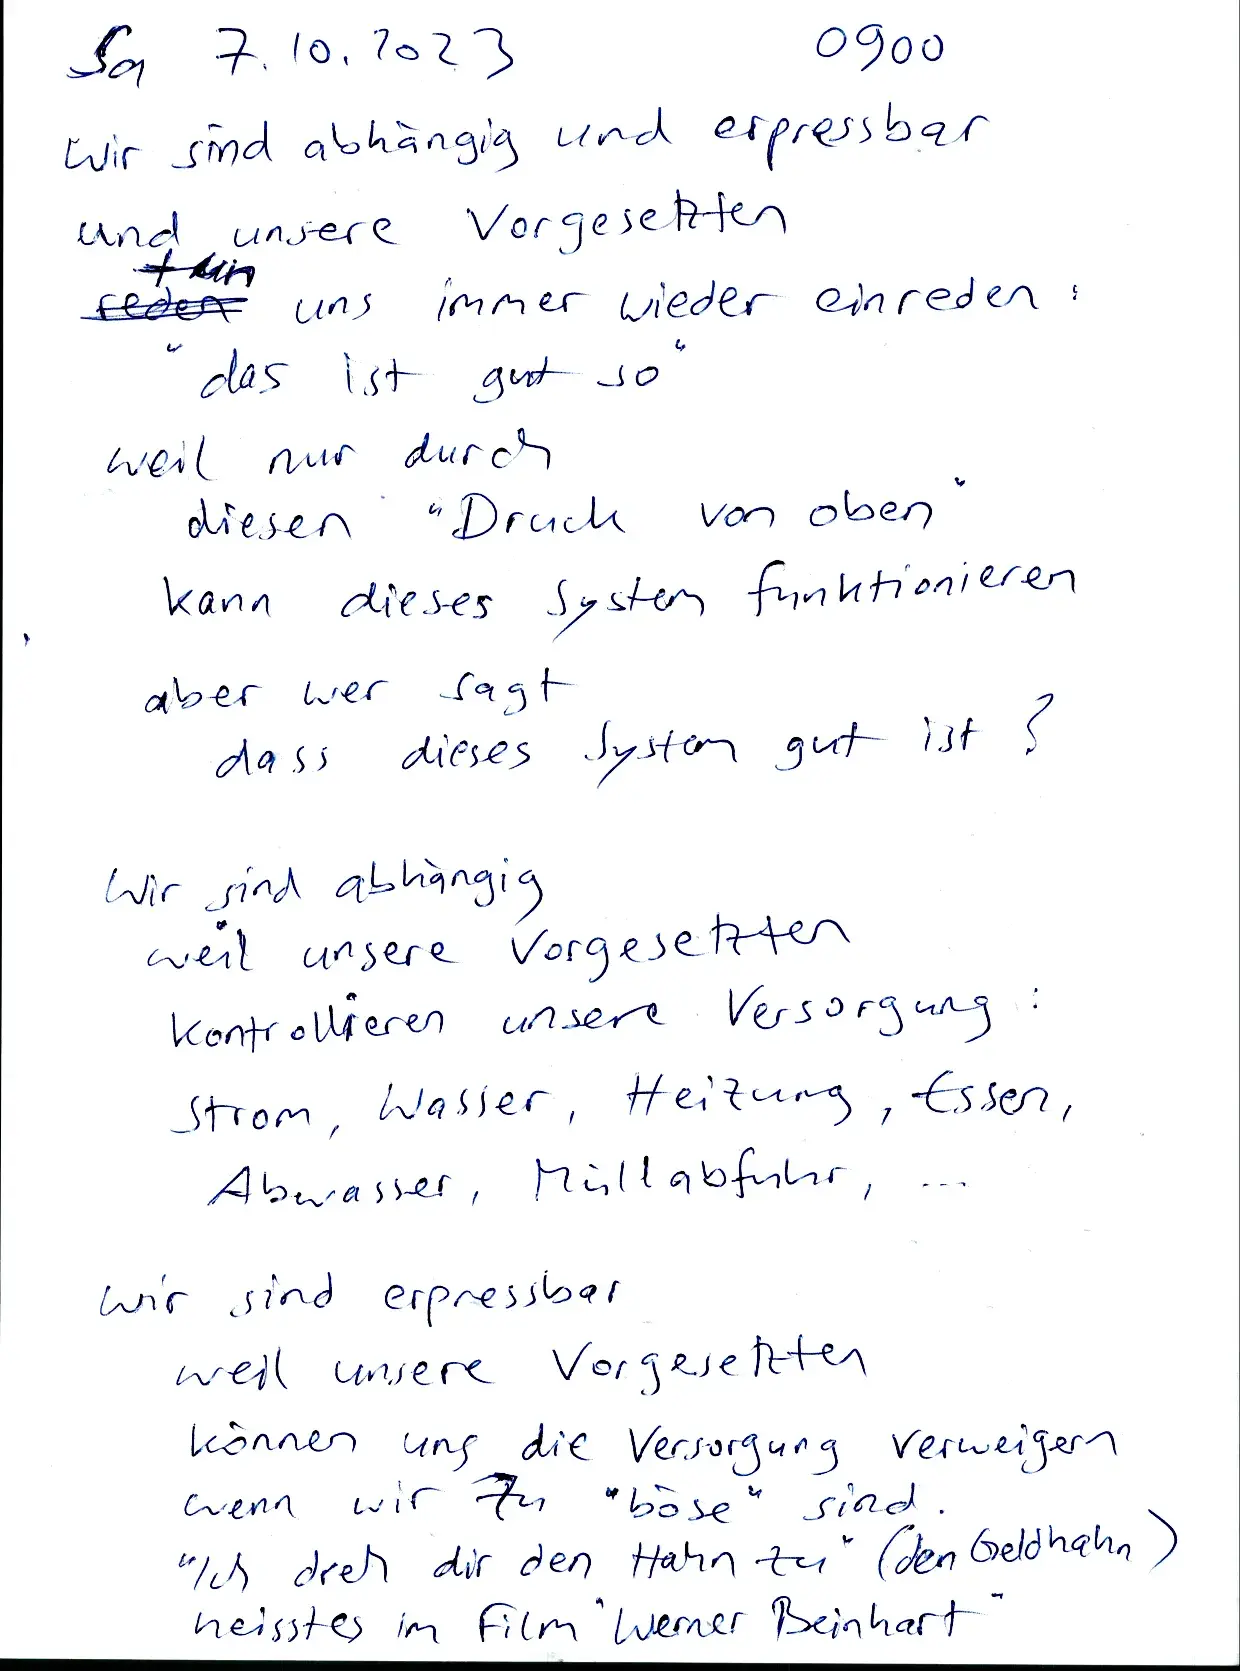 Sa 7.10.2023 0900
Wir sind abhängig und erpressbar
und unsere Vorgesetzten
tun
reden uns immer wieder einreden:
"das ist gut so"
weil nur durch
diesen "Druck von oben"
kann dieses System funktionieren
aber wer sagt
dass dieses System gut ist?
Wir sind abhängig
weil unsere Vorgesetzten
kontrollieren unsere Versorgung:
Strom, Wasser, Heizung, Essen,
Abwasser, Müllabfuhr, ...
wir sind erpressbar
weil unsere Vorgesetzten
können uns die Versorgung verweigern
wenn wir zu "böse" sind.
"Ich dreh dir den Hahn zu" (den Geldhahn)
heisstes im Film "Werner Beinhart"